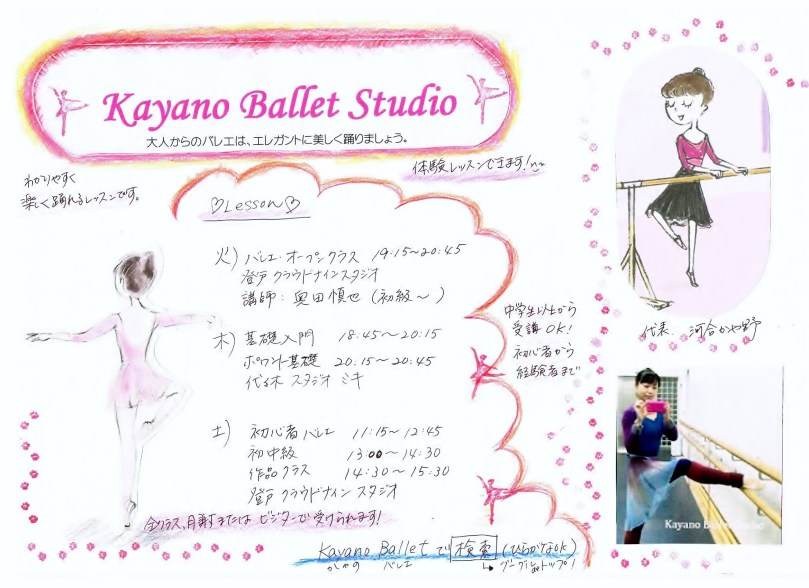 Kayano Ballet Studio
大人からのバレエは、エレガントに美しく踊りましょう。
体験レッスンできます!
わかりやすく
楽しく踊れるレッスンです。
♡Lesson♡
火) バレエ・オープンクラス 19:15〜20:45
登戸 クラウドナインスタジオ
講師: 奥田慎也 (初級〜)
木) 基礎入門 18:45〜20:15
ポワント基礎 20:15〜20:45
代々木 スタジオ ミキ
土) 初心者バレエ 11:15〜12:45
初中級 13:00〜14:30
作品クラス 14:30〜15:30
登戸 クラウドナイン スタジオ
全クラス、月謝またはビジターで受けられます!
中学生以上から
受講OK!
初心者から
経験者まで
代表 河合かや野
Kayano Ballet Studio
Kayano Balletで検索(ひらがなOK)
かやの バレエ
グーグルトップ!